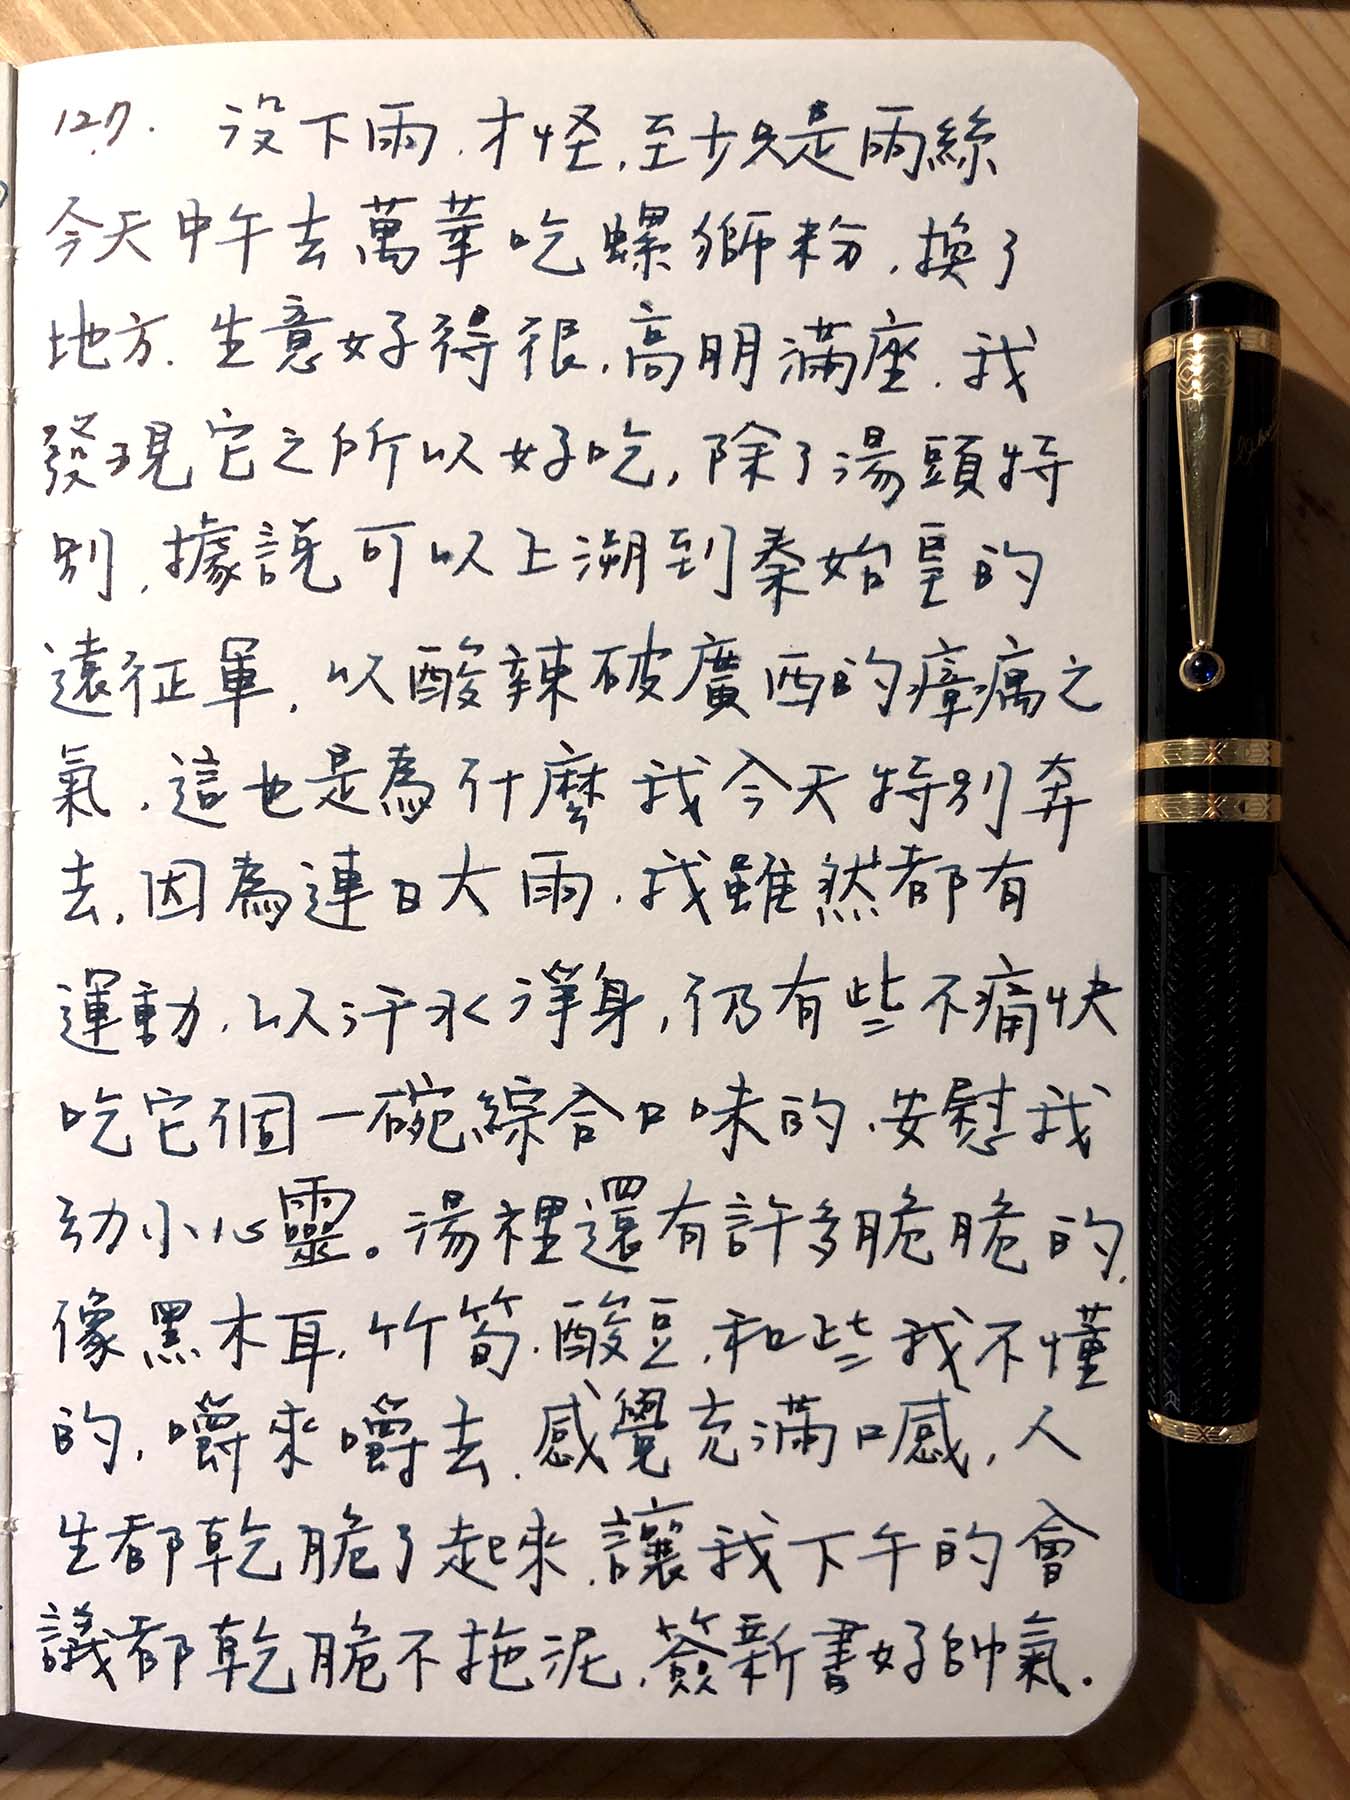 12.7. 沒下雨.才怪.至少只是雨絲
今天中午去萬華吃螺獅粉.換了
地方.生意好得很.高朋滿座.我
發現它之所以好吃,除了湯頭特
別,據說可以上溯到秦始皇的
遠征軍,以酸辣破廣西的瘴癘之
氣.這也是為什麼我今天特別奔
去.因為連日大雨.我雖然都有
運動.以汗水淨身,仍有些不痛快
吃它個一碗綜合口味的.安慰我
幼小心靈。湯裡還有許多脆脆的.
像黑木耳.竹筍.酸豆.和些我不懂
的,嚼來嚼去.感覺充滿口感,人
生都乾脆了起來.讓我下午的會
議都乾脆不拖泥.簽新書好帥氣.